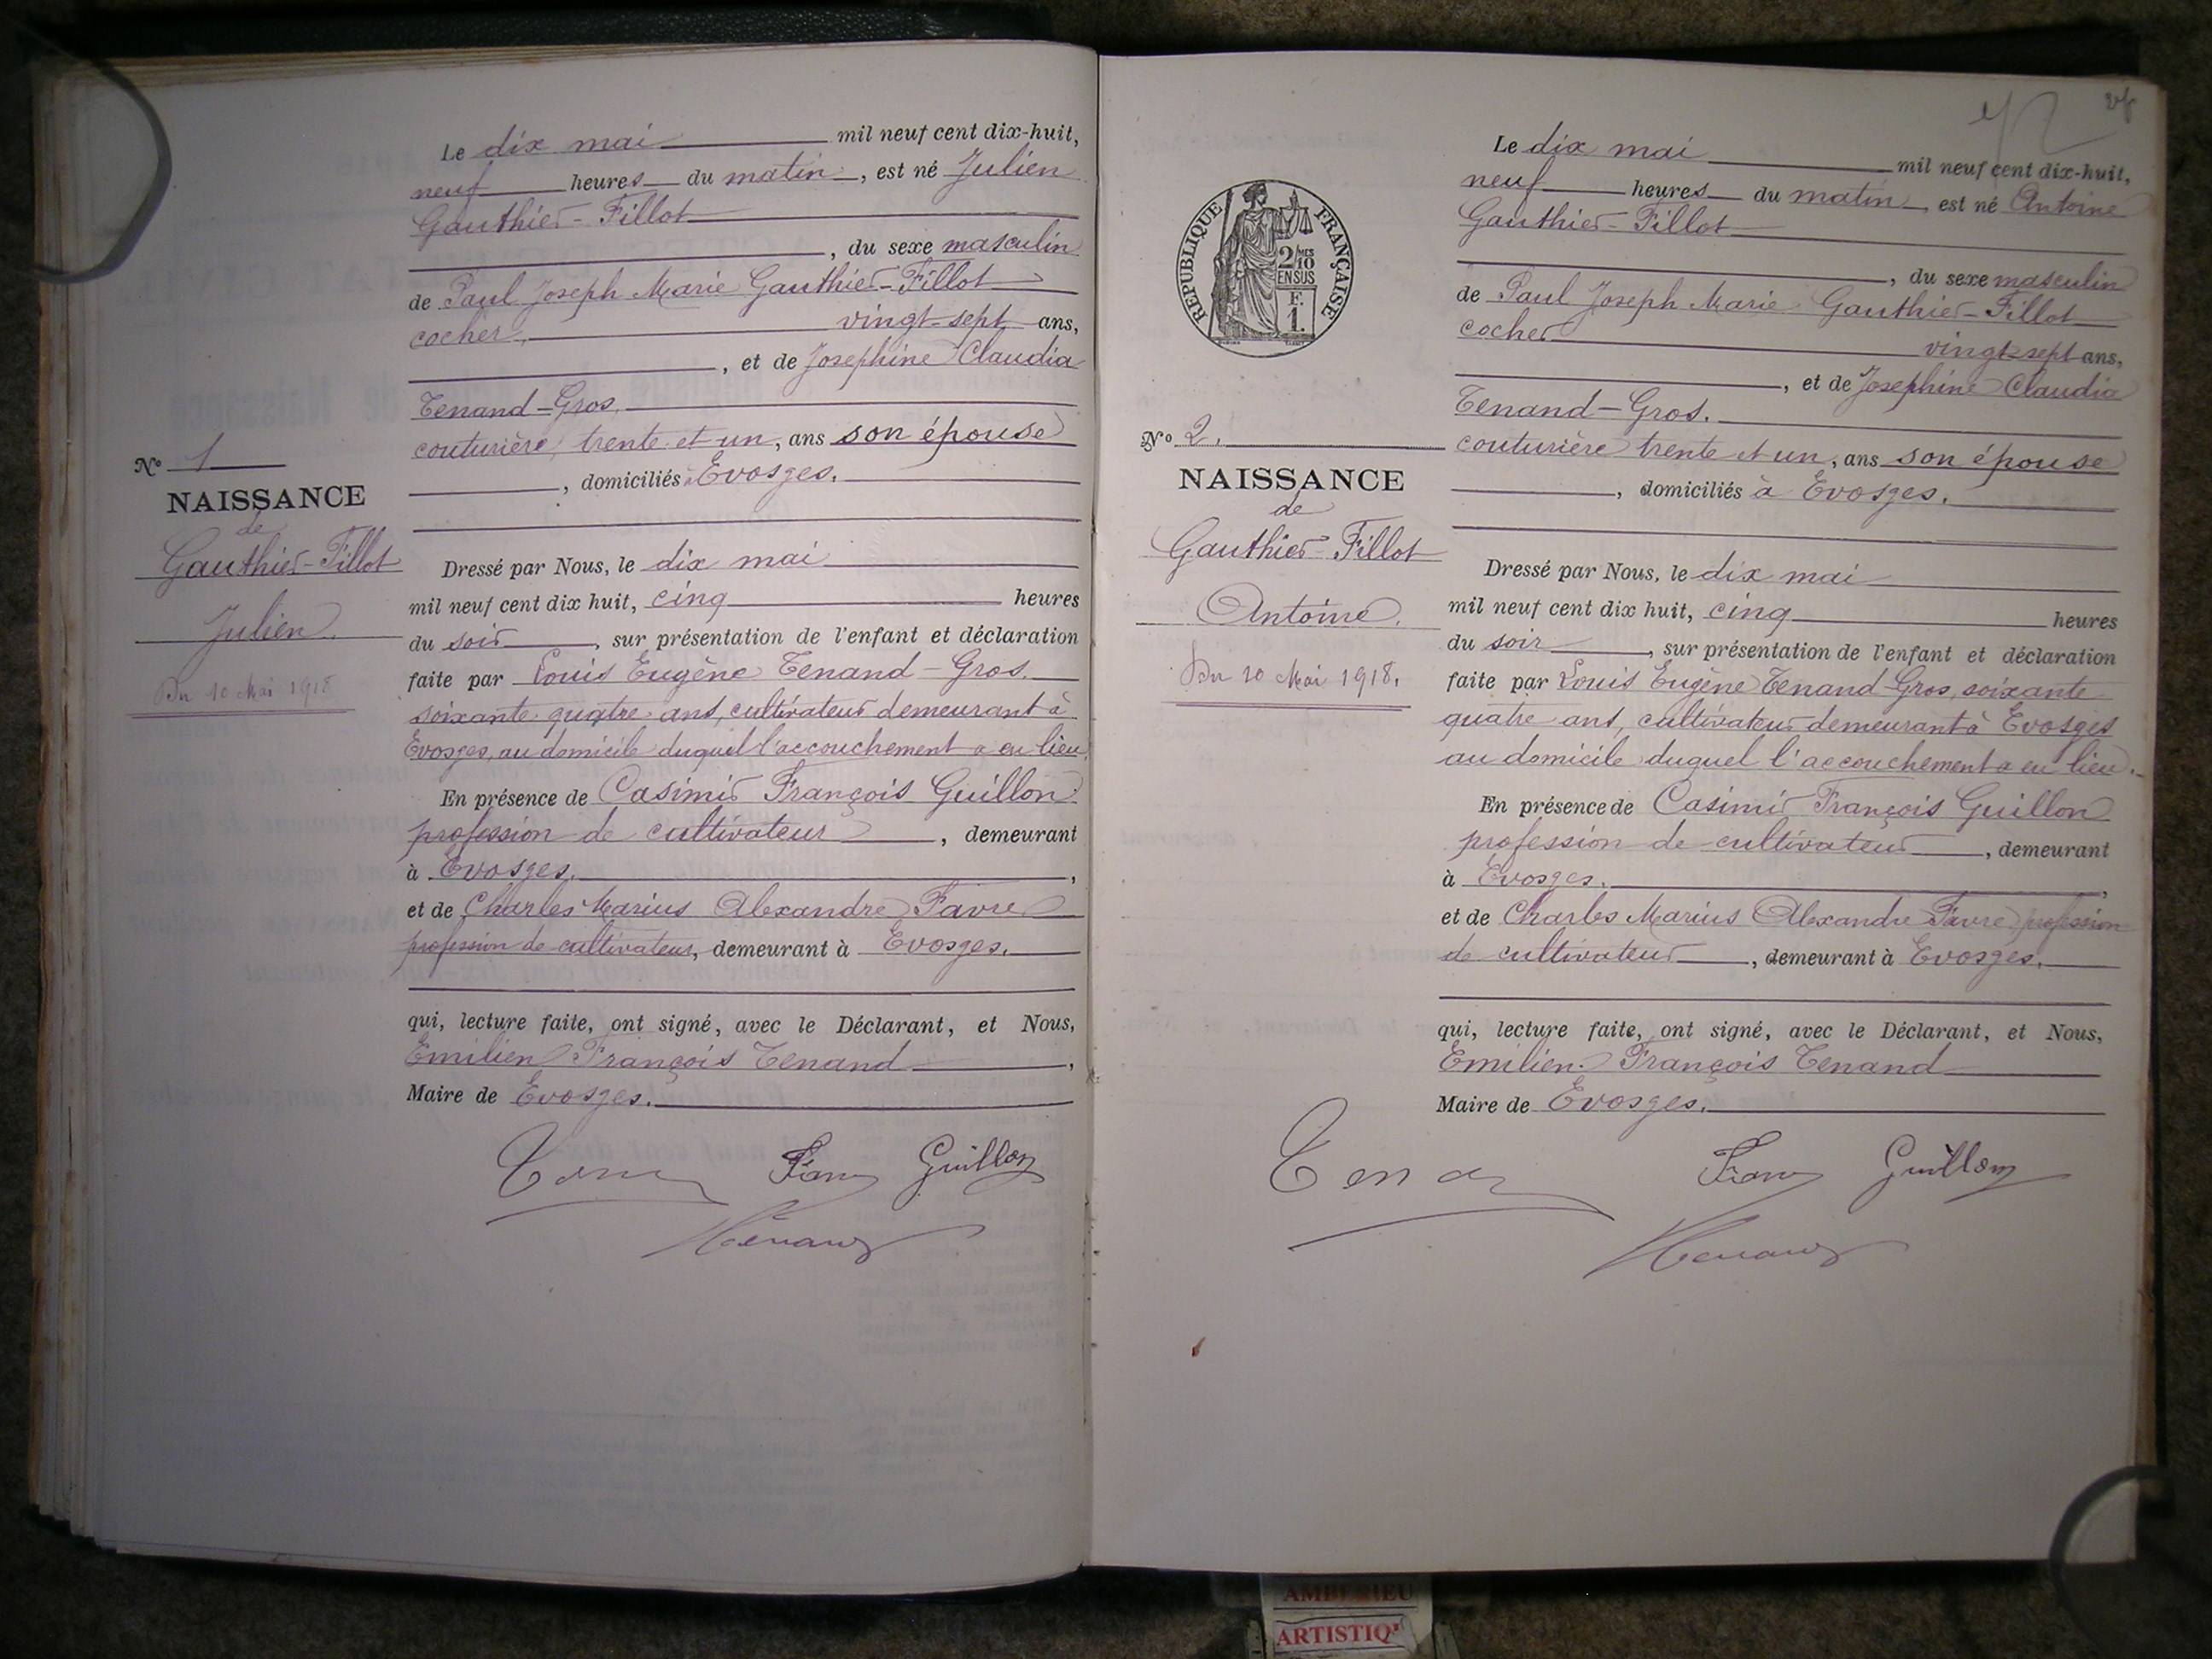 Le dix mai mil neuf cent dix-huit,
neuf heures du matin, est né Julien
Gauthier-Fillot
, du sexe masculin
de Paul Joseph Marie Gauthier-Fillot
cocher, vingt-sept ans,
, et de Josephine Claudia
Tenand-Gros,
couturière, trente et un, ans son épouse
, domiciliés à Evosges.
No 1
NAISSANCE
de
Gauthier-Fillot
Julien.
Du 10 Mai 1918
Dressé par Nous, le dix mai
mil neuf cent dix huit, cinq heures
du soir, sur présentation de l'enfant et déclaration
faite par Louis Eugène Tenand-Gros,
soixante quatre ans, cultivateur demeurant à
Evosges, au domicile duquel l'accouchement a eu lieu,
En présence de Casimir François Guillon
profession de cultivateur, demeurant
à Evosges,
et de Charles Marius Alexandre Favre
profession de cultivateur, demeurant à Evosges,
qui, lecture faite, ont signé, avec le Déclarant, et Nous,
Emilien François Tenand,
Maire de Evosges.
Guillon
Le dix mai mil neuf cent dix-huit,
neuf heures du matin, est né Antoine
Gauthier-Fillot
, du sexe masculin
de Paul Joseph Marie Gauthier-Fillot
cocher vingt sept ans,
, et de Josephine Claudia
Tenand-Gros.
couturière trente et un, ans son épouse
, domiciliés à Evosges.
REPUBLIQUE FRANÇAISE
2/10 MES
EN SUS
F.
1.
No 2.
NAISSANCE
de
Gauthier-Fillot
Antoine.
Du 10 Mai 1918.
Dressé par Nous, le dix mai
mil neuf cent dix huit, cinq heures
du soir, sur présentation de l'enfant et déclaration
faite par Louis Eugène Tenand-Gros, soixante
quatre ans, cultivateur demeurant à Evosges
au domicile duquel l'accouchement a eu lieu.
En présence de Casimir François Guillon
profession de cultivateur, demeurant
à Evosges,
et de Charles Marius Alexandre Favre profession
de cultivateur, demeurant à Evosges,
qui, lecture faite, ont signé, avec le Déclarant, et Nous,
Emilien François Tenand
Maire de Evosges.
Guillon
ARTISTIQ